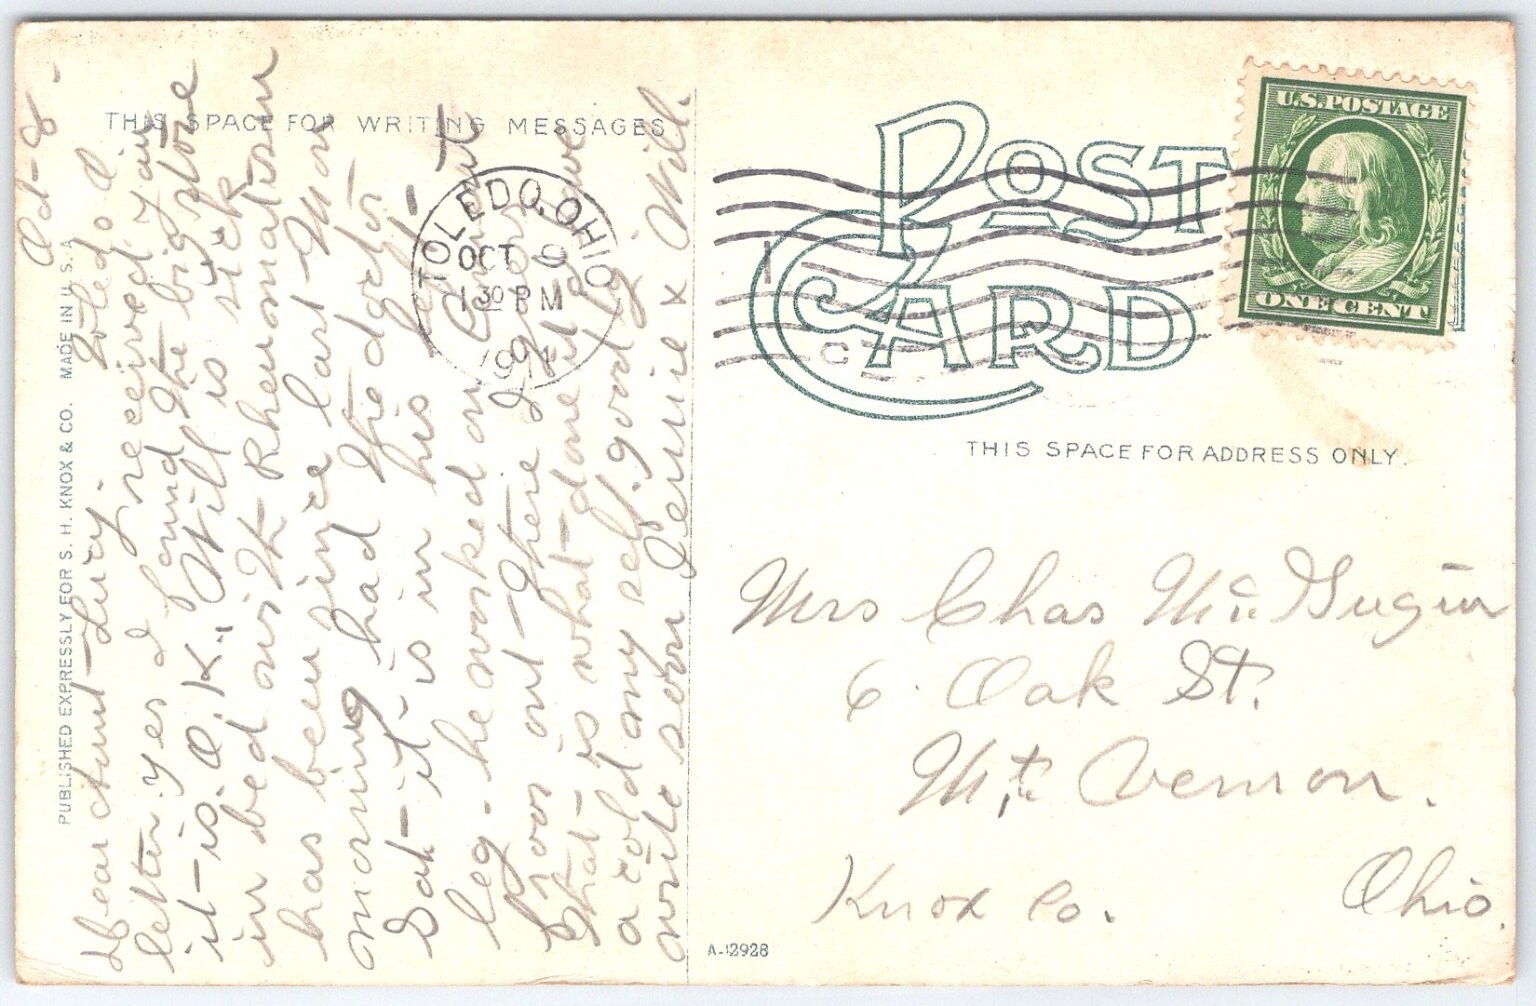 THIS SPACE FOR WRITING MESSAGES
Toledo O
Oct-8-
Dear Aunt-Lucy.
letter yes I found the big store
I received your
it-is. O.K., Will is sick
in bed with Rheumatism
has been since last Mon
morning had the doctor
Sat-it-is in his left-
leg- he worked on
floor out-there I
that-is what-done it
a cold my self. good by
write soon Jennie x Will.
PUBLISHED EXPRESSLY FOR S. H. KNOX & CO. MADE IN U.S.A.
TOLEDO, OHIO
OCT 9
1 30 PM
191
POST CARD
U.S. POSTAGE
ONE CENT
THIS SPACE FOR ADDRESS ONLY.
Mrs Chas Mc Gugin
6 Oak St.
Mt. Vernon.
Knox Co. Ohio.
A-12928